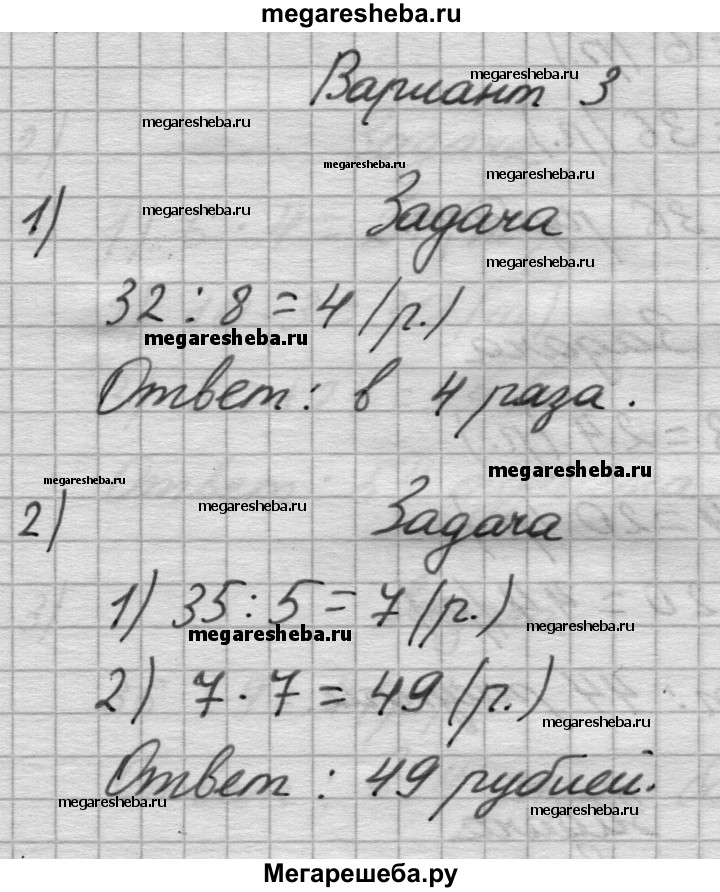 megaresheba.ru
Вариант 3
megaresheba.ru
megaresheba.ru
megaresheba.ru
megaresheba.ru
1) Задача
megaresheba.ru
megaresheba.ru
32 : 8 = 4 (р.)
megaresheba.ru
Ответ: в 4 раза.
megaresheba.ru
megaresheba.ru
megaresheba.ru
2) Задача
1) 35 : 5 = 7 (р.)
megaresheba.ru
megaresheba.ru
2) 7 · 7 = 49 (р.)
megaresheba.ru
Ответ : 49 рублей.
megaresheba.ru
megaresheba.ru
Мегарешеба.ру